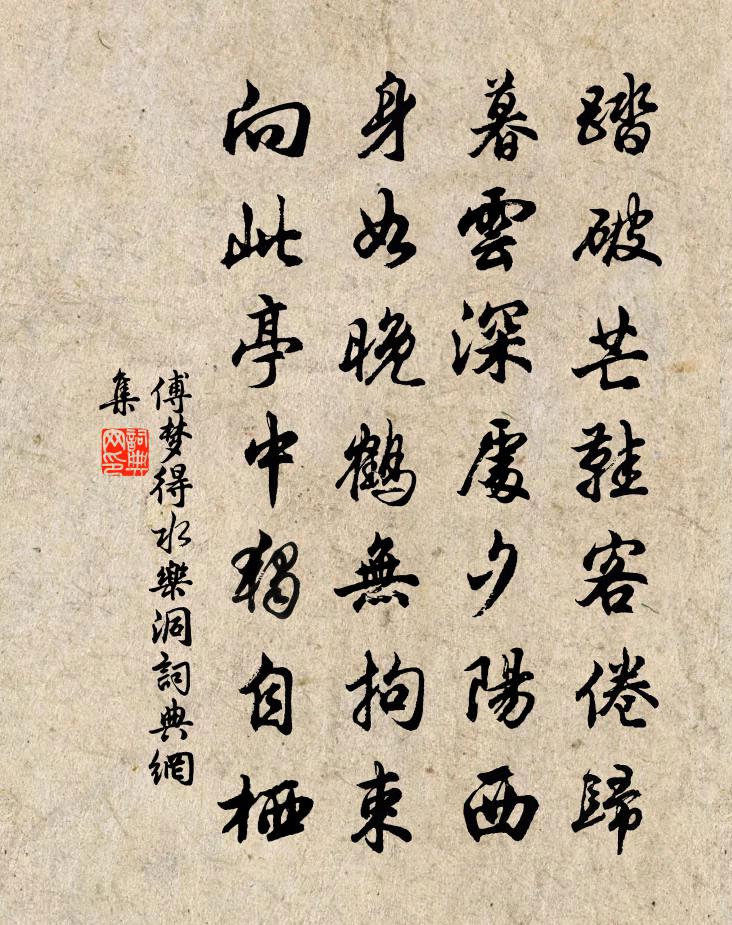 踏破芒鞋客倦歸
暮雲深處夕陽西
身如晚鶴無拘束
向此亭中獨自栖
傅梦得水樂洞詞典網
集
詞典
网印